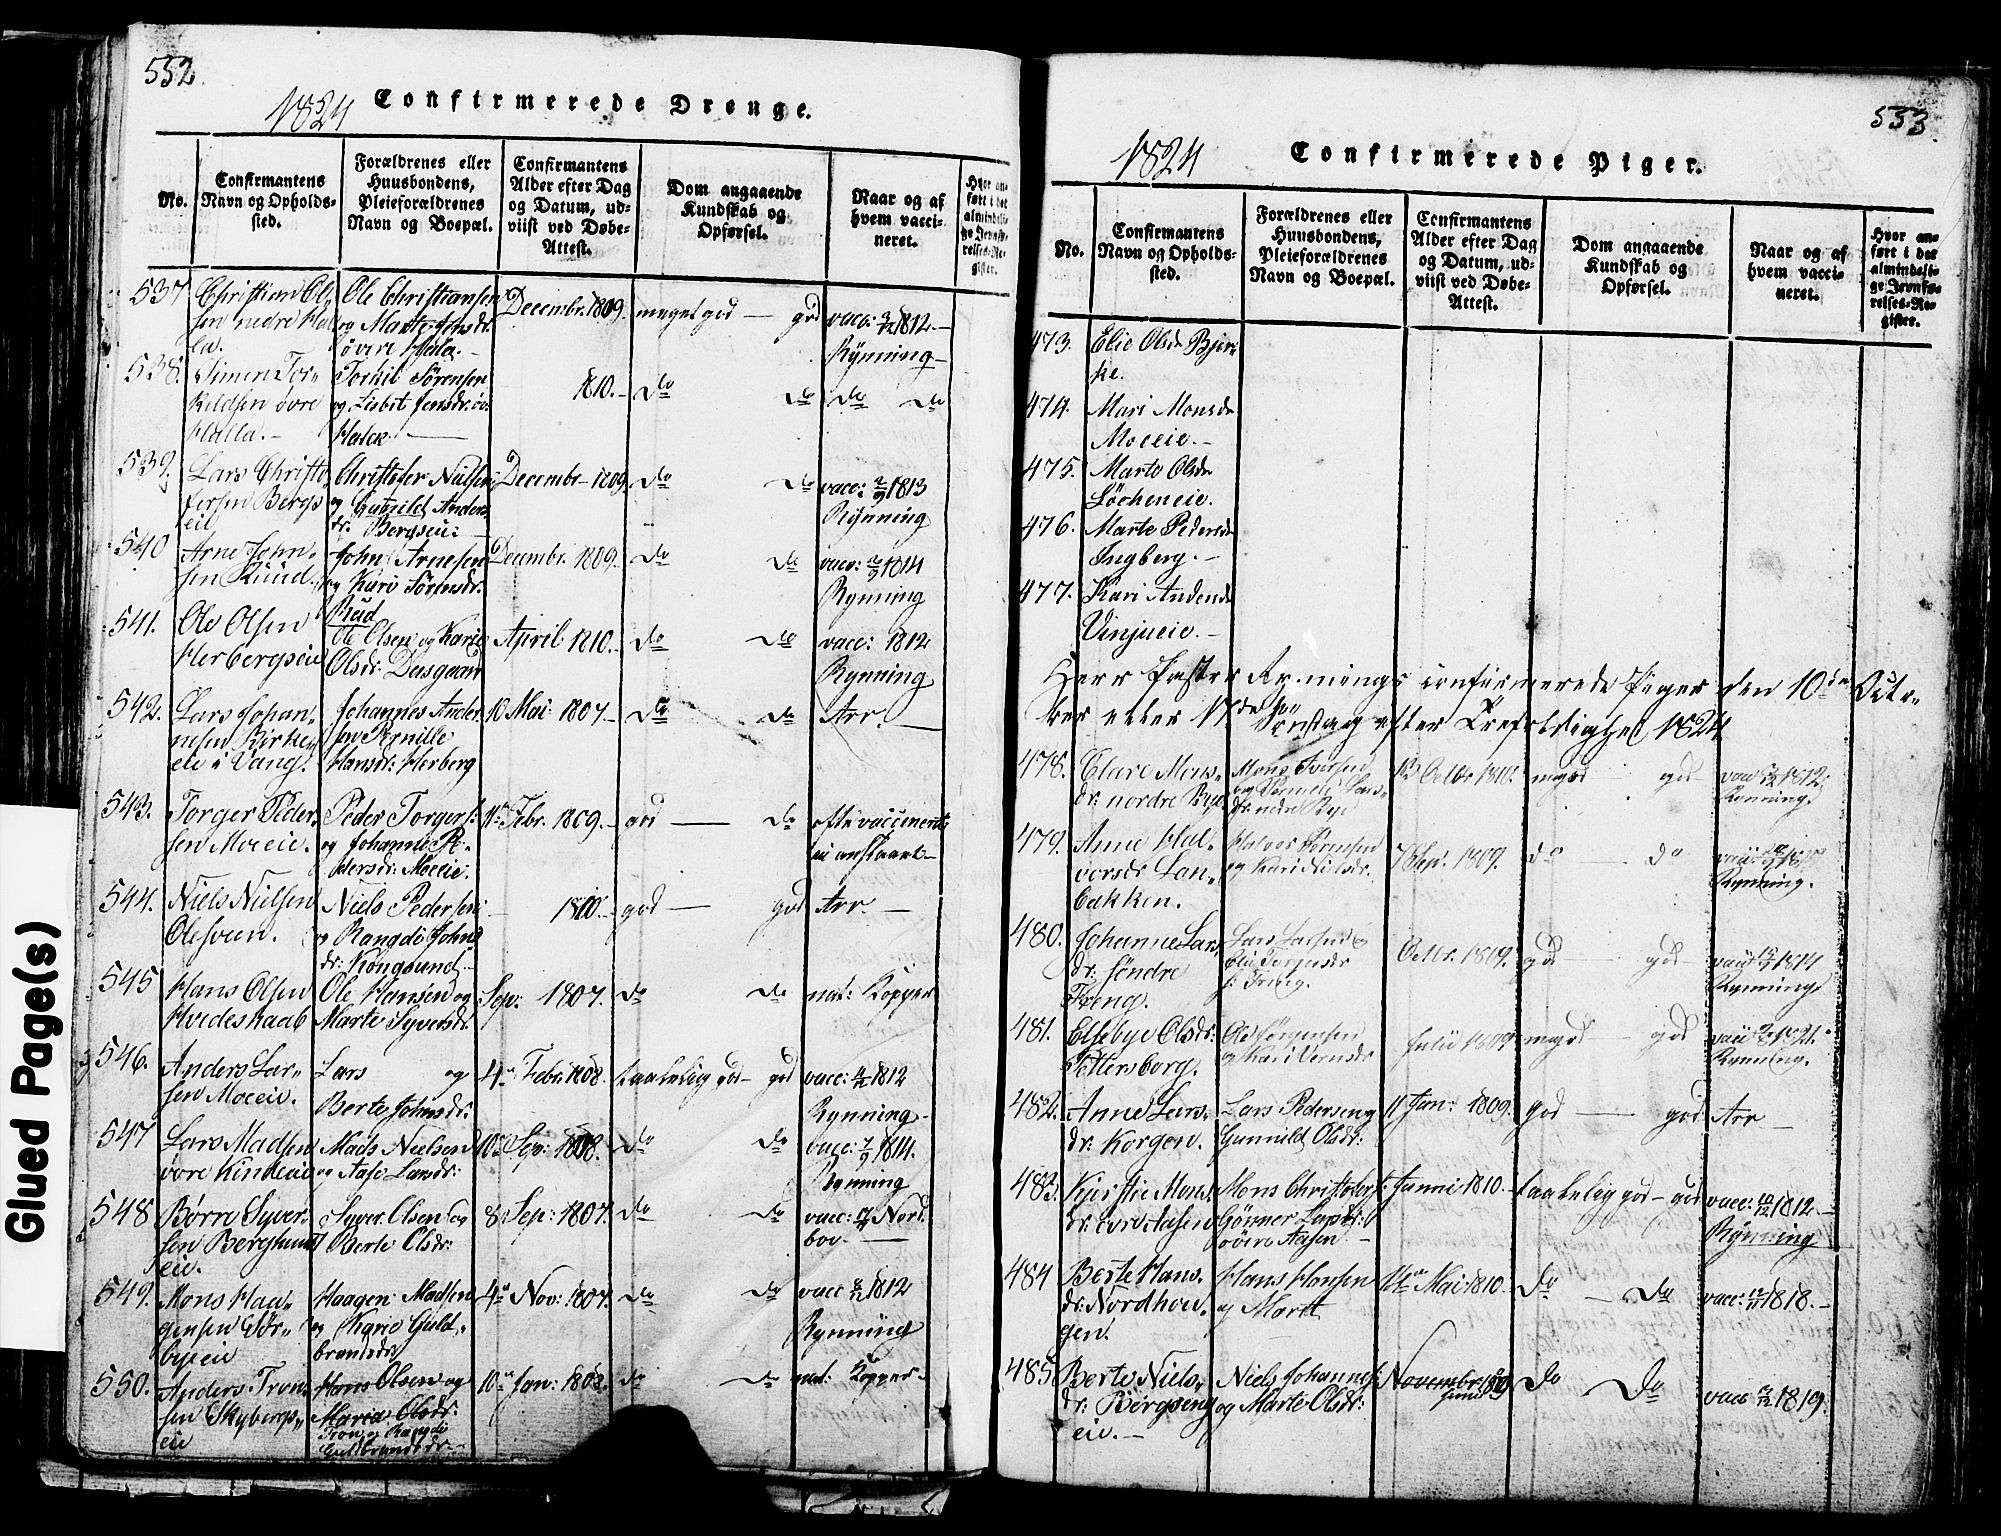 552.
1824 Confirmerede Drenge.
No.
Confirmantens
Navn og Opholds-
sted.
Forældrenes eller
Huusbondens,
Pleieforældrenes
Navn og Boepæl.
Confirmantens
Alder efter Dag
og Datum, ud-
viist ved Døbe-
Attest.
Dom angaaende
Kundskab og
Opførsel.
Naar og af
hvem vacci-
neret.
Hvor an-
ført i det
almindeli-
ge Jevnfø-
relses-Re-
gister.
537 Christian Ol-
sen nedre Hal-
la.
Ole Christiansen
og Marte Jensdr.
øvre Hala.
Decembr. 1809.
meget god — god
vacc: 1812.
Rynning
538. Simen Tor-
kildsen øvre
Halla.
Torkil Sörensen
og Lisbet Jensdr. öv.
Halla.
1810.
do do
do do
539. Lars Christo-
fersen Bergs
eie
Christofer Nielsen
og Gunild Anders
dr. Bergseie
Decembr. 1809.
do do
vacc: 1813
Rynning
540 Arne John-
sen Ruud.
John Arnesen
og Kari Sörensdr.
Rud
Decembr. 1809.
do do
vacc: 1814
Rynning
541. Ole Olsen
Herbergseie
Ole Olsen og Kari
Olsdr:
April 1810.
do do
vacc: 1812
Rynning
542. Lars Johan-
nesen Birke-
eie i Vang.
Johannes Ander
sen Pernille
Hansdr: Herberg
10 Mai: 1807.
do do
Arr.
543. Torger Peder-
sen Moeeie.
Peder Torgers:
og Johanne Pe-
dersdr: Moeeie.
11te Febr. 1809.
god — do
ofte vaccineret
544. Niels Nielsen
Olesveen.
Niels Pedersen
og Rangdi Johns
dr: Kongsund
1810.
god — god
Arr.
545 Hans Olsen
Hvideskaab
Ole Hansen og
Marte Syversdr.
Sep: 1807.
do do
nat: Kopper
546. Anders Lar-
sen Moeeie.
Lars og
Berte Johnsdr:
4de Febr. 1808.
taalelig god — god
vacc: 1812
Rynning
547 Lars Madsen
övre Kindeeie
Mads Nielsen
og Aase Larsdr:
10de Sep: 1808.
do do
vacc: 1814.
Rynning
548 Børre Syver-
sen Berg
eie.
Syver Olsen og
Berte Olsdr:
8de Sep: 1807.
do do
vacc:
549. Mons Haa-
gensen Sør-
byeie
Haagen Madsen
og Kari Guld-
brandsdr
4de Nov: 1807.
do do
vacc 1812
Rynning
550. Anders Tron-
sen Skybergs-
eie
Hans Olsen og
Maria Olsdr:
Tron og Rangdi
Guldbrandsdr.
10de Jan: 1808.
do do
nat. Kopper.
533.
1824 Confirmerede Piger.
No.
Confirmantens
Navn og Opholds-
sted.
Forældrenes eller
Huusbondens,
Pleieforældrenes
Navn og Boepæl.
Confirmantens
Alder efter Dag
og Datum, ud-
viist ved Døbe-
Attest.
Dom angaaende
Kundskab og
Opførsel.
Naar og af
hvem vacci-
neret.
Hvor an-
ført i det
almindeli-
ge Jevnfø-
relses-Re-
gister.
473. Elie Olsdr Bjer-
ke.
474. Mari Monsdr
Moeeie.
475. Marte Olsdr
Löckeneie.
476. Marte Pedersdr
Ingberg.
477. Kari Andersdr
Vinjueie.
Herr Pastor Rynnings confirmerede Piger den 10de Octo-
ber eller 17de Söndag efter Trefoldighed 1824
478. Clare Mons-
dr: nordre Bye
Mons Iversen
og Pernele Lars-
dr: nedre Bye
13 Octbr 1810.
megod god
vacc 1812
Rynning.
479. Anne Hal-
vorsdr Lan-
bakken.
Halvor Sörensen
og Kari Nilsdr.
7 Sep. 1809.
do do
Rynning.
480. Johanne Lars
dr: söndre
Treng.
Lars Larsen og
Elie Torgersdr
s: Treng.
Octbr. 1809.
god god
vacc 1814
Rynning
481. Ellebye Olsdr:
Pettersborg.
Ole Jörgensen
og Kari
Julii 1809
megod — god
vacc 1821
Rynning.
482. Anne Lars-
dr: Korgen.
Lars Pedersen og
Gunnild Olsdr:
11 Jan: 1809.
god — god
Arr
483. Kjerstie Mons
dr: övre Aasen
Mons Christofers:
Gönner Larsdr:
övre Aasen
Junii 1810.
taalelig god — god
vacc: 1812.
Rynning
484 Berte Hans
dr: Nordhou-
gen.
Hans Hansen
og Maret
14de Mai 1810.
do — do
vacc: 1818.
485. Berte Niels-
dr: Bergseng
eie.
Niels Johannes:
og Marte Olsdr:
Novembr. 1809
do do
vacc 1819.
Glued Page(s)